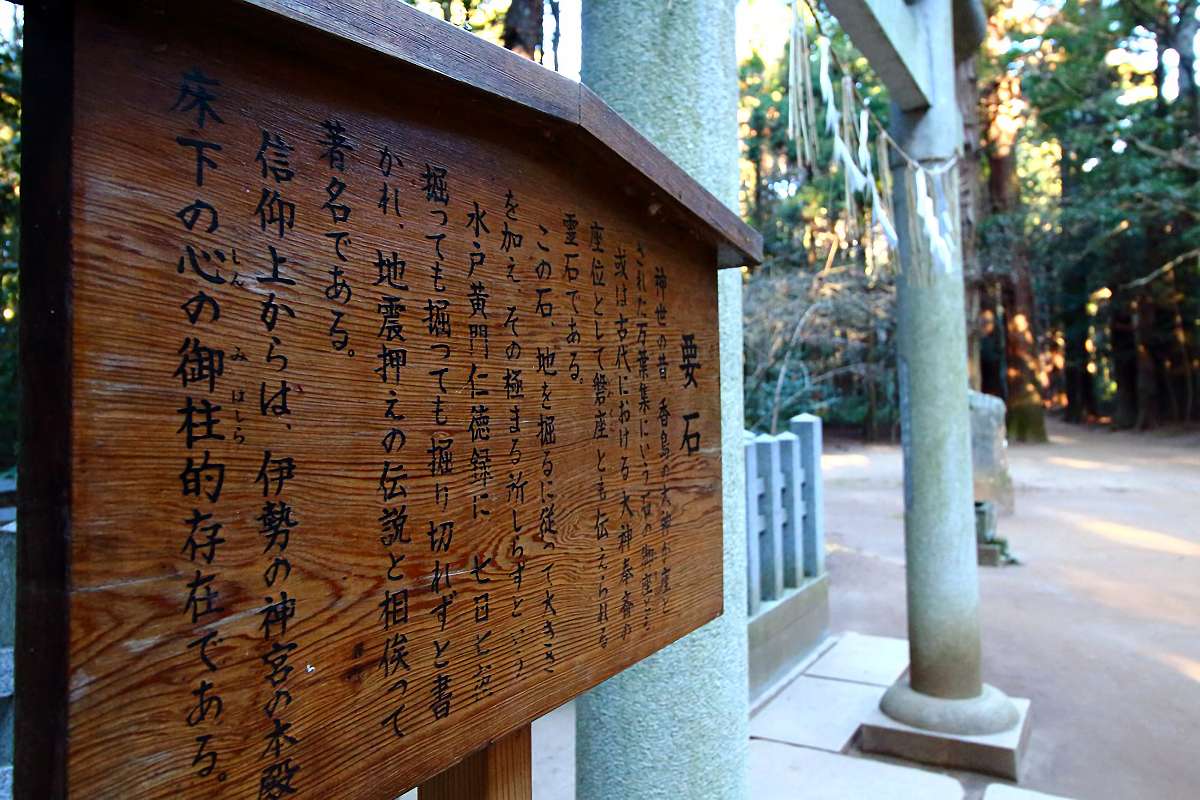 要石
神世の昔 香島の大神が座と
された万葉集にいう石の御座とも
或は古代における大神奉斎の
座位として磐座とも伝えられる
霊石である。
この石、地を掘るに従って大きさ
を加え、その極まる所しらずという
水戸黄門仁徳録に 七日七夜
掘っても掘っても掘り切れずと書
かれ、地震押えの伝説と相俟って
著名である。
信仰上からは、伊勢の神宮の本殿
床下の心の御柱的存在である。
しん
み
はしら